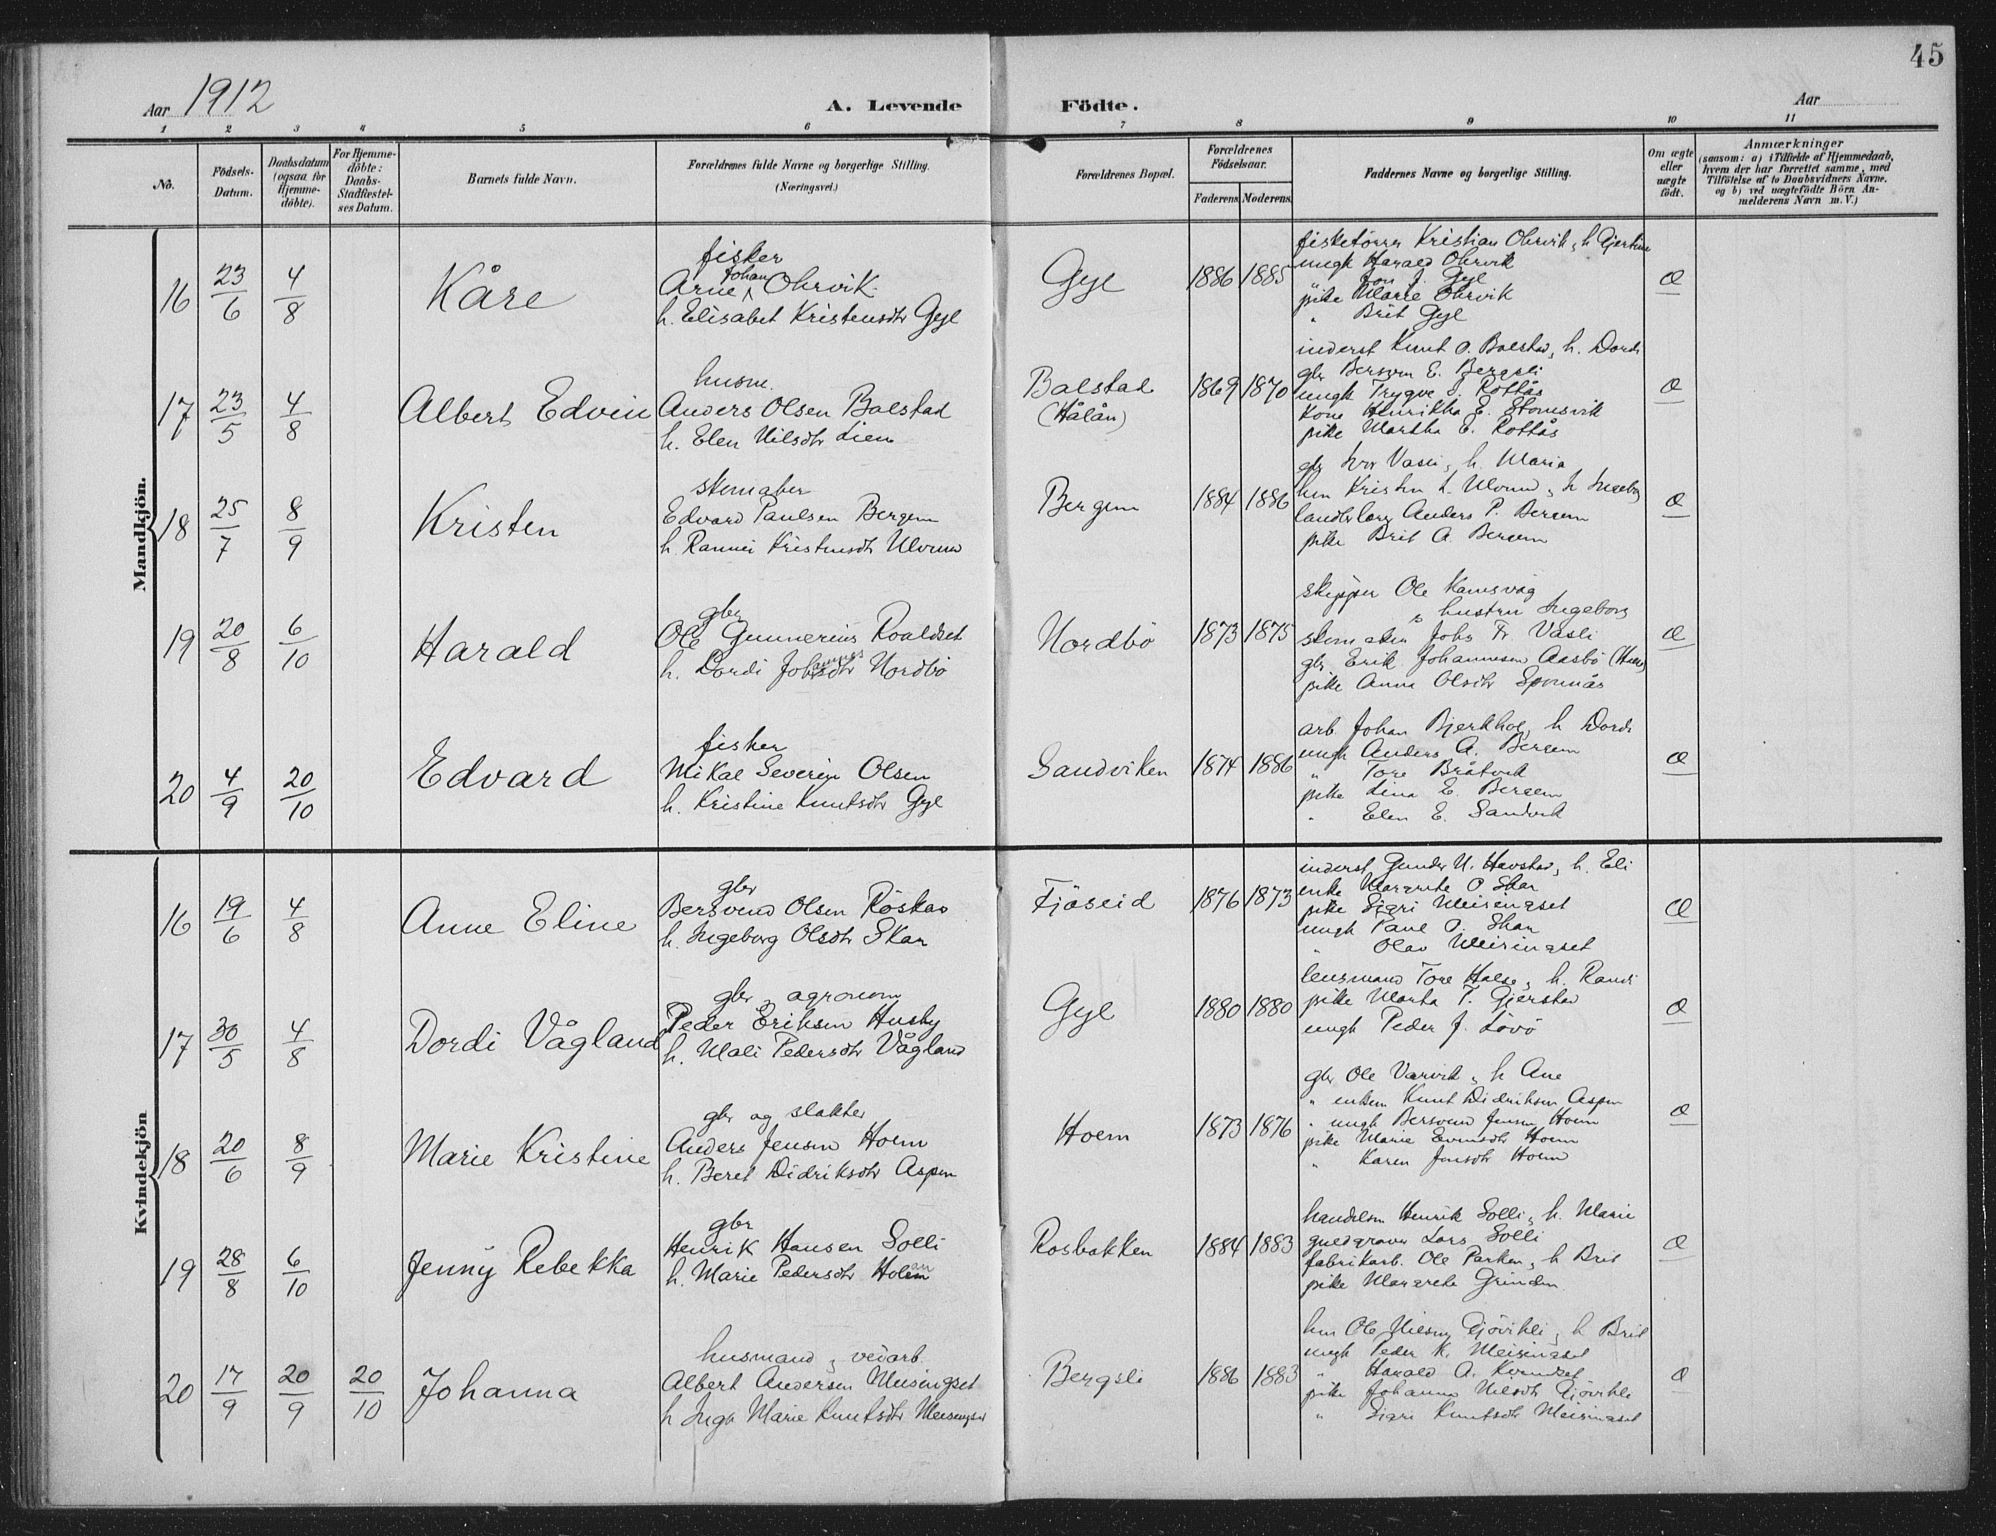 45
Aar 1912
A. Levende Födte.
Aar
1 2 3 4 5 6 7 8 9 10 11
No.
Födsels-
Datum.
Daabsdatum
(ogsaa for
Hjemme-
döbte).
For Hjemme-
döbte:
Daabs-
Stadfæstel-
ses Datum.
Barnets fulde Navn.
Forældrenes fulde Navne og borgerlige Stilling.
(Næringsvei.)
Forældrenes Bopæl.
Forældrenes
Födselsaar.
Faderens Moderens
Faddernes Navne og borgerlige Stilling.
Om ægte
eller
uægte
födt.
Anmærkninger
(saasom: a) i Tilfælde af Hjemmedaab,
hvem der har forrettet samme, med
Tilföielse af to Daabsvidners Navne.
og b) ved uægtefödte Börn An-
melderens Navn m. V.)
Mandkjön.
16 23/6 4/8 Kåre
fisker
Arne Johan Ohrvik
h. Elisabet Kristensdtr Gyl
Gyl 1886 1885
Kristian Ohrvik, h Gjertine
ungk Harald Ohrvik
" Jon J. Gyl
pike Marie Ohrvik
" Brit Gyl
Æ
17 23/5 4/8 Albert Edvin
husm.
Anders Olsen Bolstad
h. Elen Nilsdtr Lien
Bolstad
(Hålån)
1869 1870
inderst Knut O. Bolstad, h. Dordi
gbr Bersven E. Bergsli
ungk Trygve I. Rottås
kone Henrikka E. Stomsvik
pike Martha E. Rottås
Æ
18 25/7 8/9 Kristen
skomaker
Edvard Paulsen Bergem
h. Rannei Kristensdtr Ulvund
Bergem 1884 1886
gbr Ivor Vasli, h. Maria
hm Kristen L. Ulvund, h Ingeborg
Anders P. Bergem
pike Brit A. Bergem
Æ
19 20/8 6/10 Harald
gbr
Ole Gunnerius Roaldset
h. Dordi Johannesdtr Nordbö
Nordbö 1873 1875
skipper Ole Kamsvåg
" hustru Ingeborg
skomaker Johs Fr. Vasli
gbr. Erik Johannesen Aasbö
pike Anna Olsdtr Sponnås
Æ
20 4/9 20/10 Edvard
fisker
Mikal Severin Olsen
h. Kristine Knutsdtr Gyl
Sandviken 1874 1886
arb Johan Bjerkhol, h Dordi
ungk Anders A. Bergem
" Tore Bråtvik
pike Lina E. Bergem
" Elen E. Sandvik
Æ
Kvindekjön
16 19/6 4/8 Anne Eline
gbr
Bersvend Olsen Röskav
h. Ingeborg Olsdtr Skar
Fjöseid 1876 1873
inderst Gunder N. Havstad, h. Eli
enke Margrete O. Skar
pike Sigri Meisingset
ungk Paul O. Skar
" Olav Meisingset
Æ
17 30/5 4/8 Dordi Vågland
gbr, agronom
Peder Eriksen Husby
h. Mali Pedersdtr Vågland
Gyl 1880 1880
lensmand Tore Halse, h. Randi
pike Marta T. Gjerstad
ungk Peder J. Lövö
Æ
18 20/6 8/9 Marie Kristine
gbr og slakter
Anders Jensen Hoem
h. Beret Didriksdtr Aspen
Hoem 1873 1876
gbr Ole Varvik, h Ane
" enkem Knut Didriksen Aspen
" ungk Bersvend Jensen Hoem
pike Marie Evensdtr Hoem
" Karen Jensdtr Hoem
Æ
19 28/8 6/10 Jenny Rebekka
gbr
Henrik Hansen Solli
h. Marie Pedersdtr
Rosbakken 1884 1883
handelsm Henrik Solli, h. Marie
guldgraver Lars Solli
fabrikarb. Ole Parken, h Brit
pike Margrete Grinden
Æ
20 17/9 20/9 20/10 Johanna
husmand, veiarb.
Albert Andersen Meisingset
h Inga Marie Knutsdtr Meisingset
Bergsli 1886 1883
hm Ole Nilsen Gjövikli, h Brit
ungk Peder K. Meisingset
" Harald A. Kvendset
pike Johanna Nilsdtr Gjövikli
" Sigri Knutsdtr Meisingset
Æ